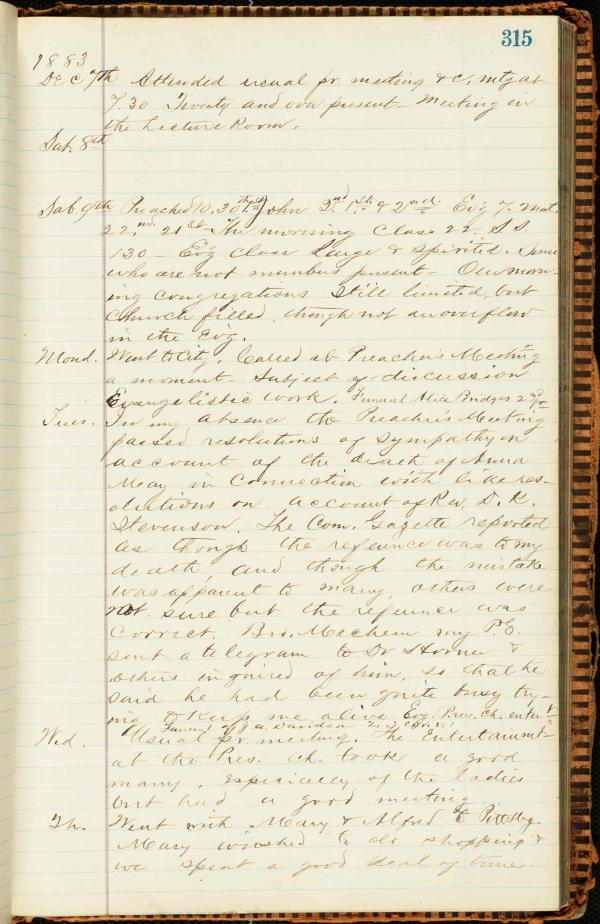 315
1883
Dec 7th Attended usual pr. meeting & c, mtg at
7.30 Twenty and over present - Meeting in
the Lecture Room.
Sat. 8th
Sab. 9th Preached 10.30 1st John 3rd 1st & 2nd. Ev'g 7. Mat.
22nd 21st The morning Class 22. S S
130 - Ev'g Class large & spirited. Some
who are not members present - Our morn-
ing congregations still limited, but
Church filled though not an overflow
in the Ev'g.
Mond. Went to City, Called at Preacher's Meeting
a moment - Subject of discussion
Evangelistic work. Funeral Alice Bridges 2nd
Tues. In my absence the Preacher's Meeting
passed resolutions of sympathy on
account of the death of Anna
May in Connection with like res-
olutions on account of Rev. D. K.
Stevenson. The Com. Gazette reported
as though the reference was to my
death and though the mistake
was apparent to many others were
not sure but the reference was
correct. Bro. Mechem my P. E.
sent a telegram to Dr Horner &
others inquired of him, so that he
said he had been quite busy try-
ing to keep me alive Evg. Pres. Ch. entert
Funeral of J. A. Davidson 2
Wed. Usual pr. meeting. The Entertainment
at the Pres. ch. took a good
many, especially of the ladies
but had a good meeting
Th. Went with Mary & Alfred to Pittsbg.
Mary wished to do shopping &
we spent a good deal of time.